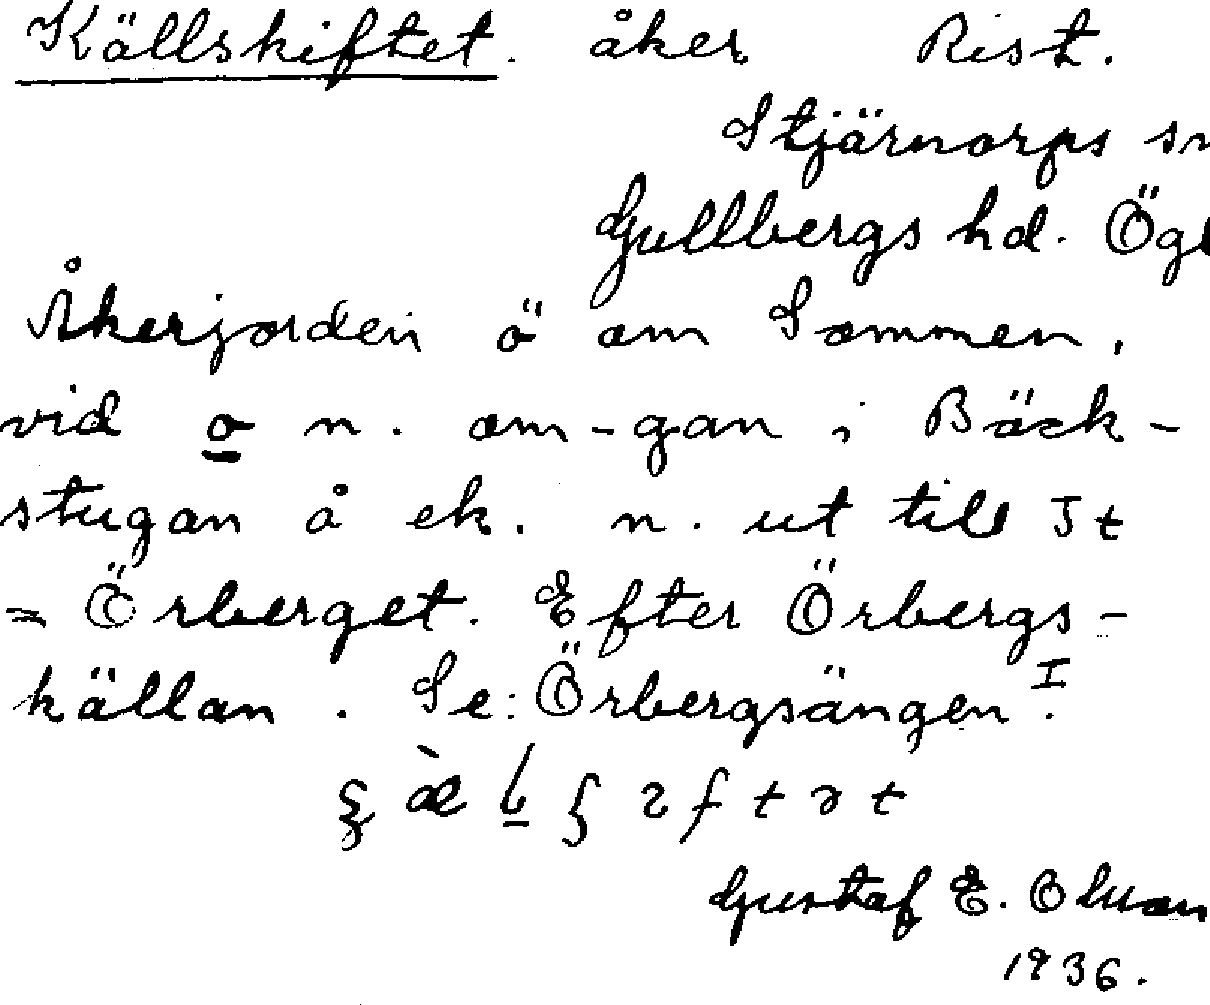 Källskiftet. åker Rist.
Stjärnorps sn
Gullbergs hd. Ögl
Åkerjorden ö om Sommen,
vid o n. om-gan i Bäck-
stugan å ek. n. ut till It
= Örberget. Efter Örbergs-
källan. Se: Örbergsängen I.
Gustaf E. Olson
1936.